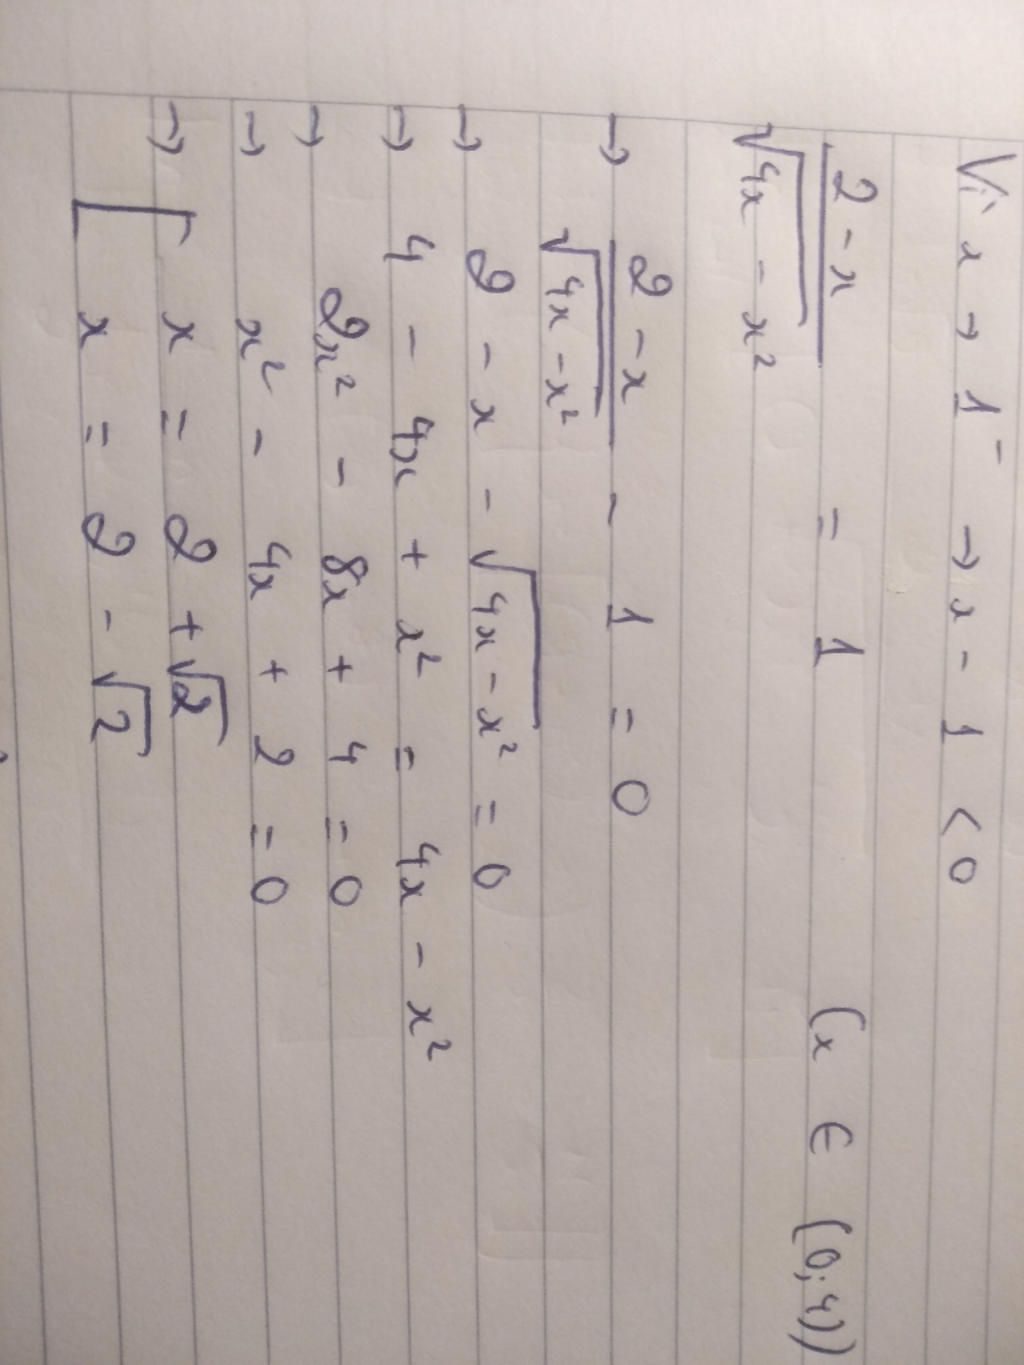 Vì x → 1⁻ → x - 1 < 0
(2 - x)/√(4x - x²) = 1 (x ∈ (0; 4))
→ (2 - x)/√(4x - x²) - 1 = 0
→ 2 - x - √(4x - x²) = 0
→ 4 - 4x + x² = 4x - x²
→ 2x² - 8x + 4 = 0
→ x² - 4x + 2 = 0
→ [ x = 2 + √2
x = 2 - √2